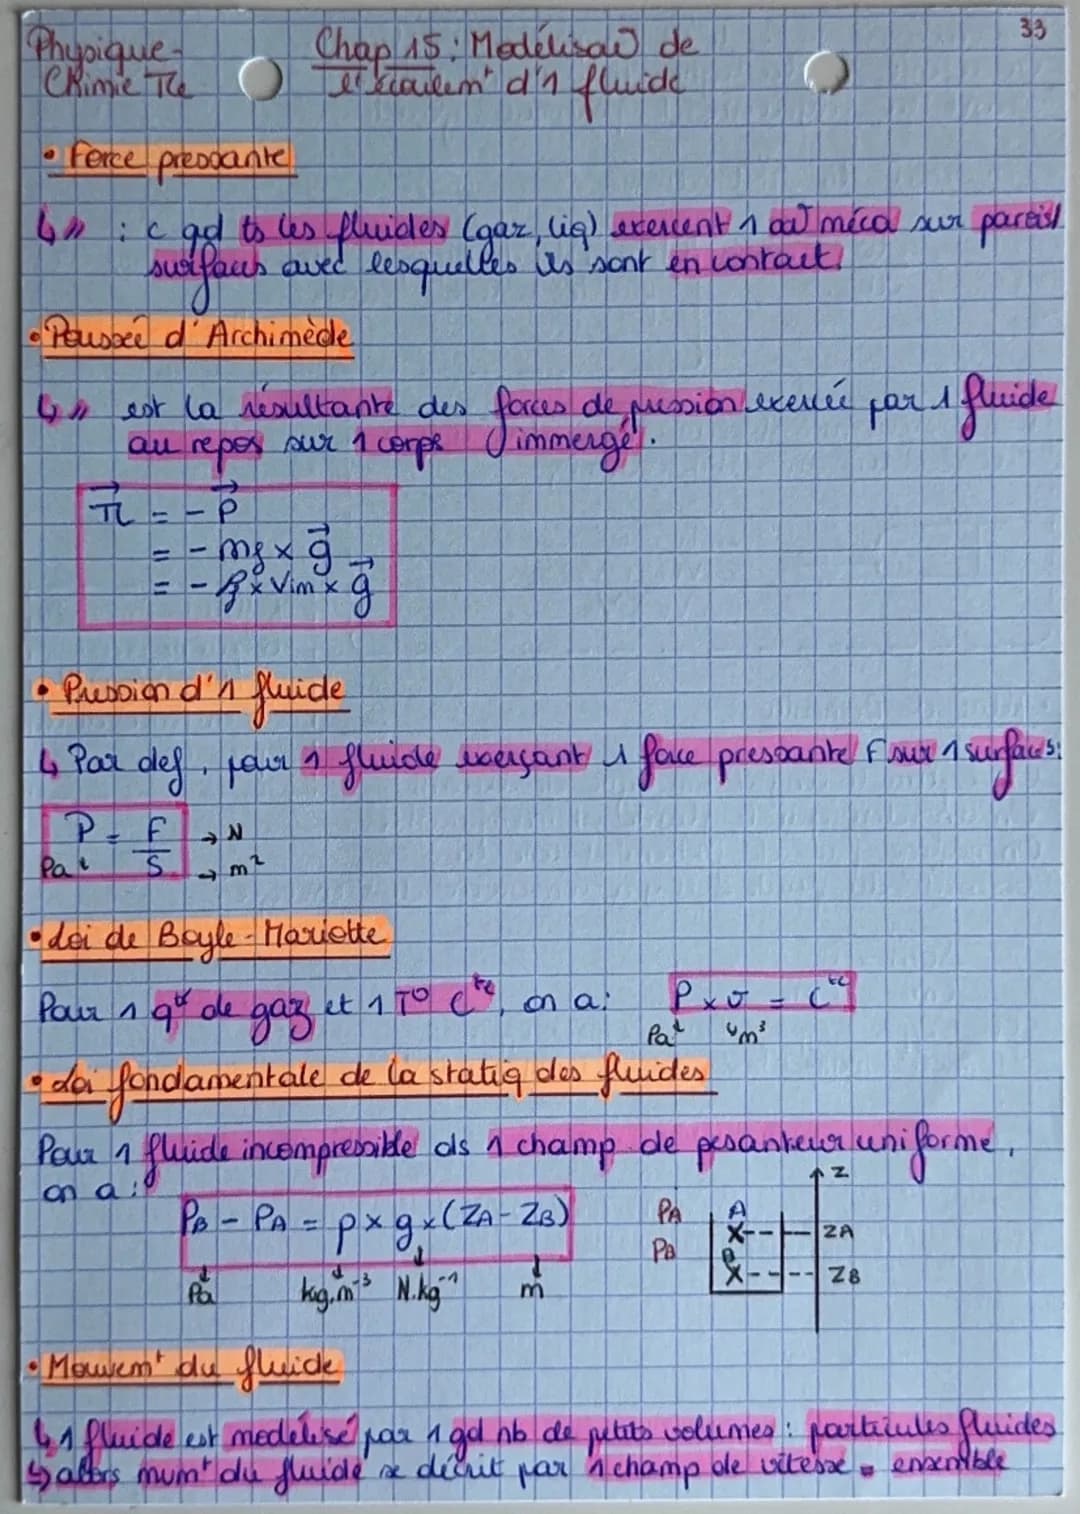 33
Physique-
Chimie Tle
Chap 15 : Modélisa° de
l'écoulem^t d'1 fluide
• Force pressante
↳ " : c qd ts les fluides (gaz, liq) exercent 1 ac° méca sur parois/
surfaces avec lesquelles ils sont en contact.
• Poussée d'Archimède
↳ " est la résultante des forces de pression exercée par 1 fluide
au repos sur 1 corps immergé.
π⃗ = - P⃗
= - mf × g⃗
= - ρf × Vim × g⃗
• Pression d'1 fluide
↳ Par def, pour 1 fluide exerçant 1 force pressante F sur 1 surface S:
P = F/S → N
Pa → m²
• Loi de Boyle-Mariotte
Pour 1 qté de gaz et 1 T° C^te, on a: P × V = C^te
Pa m³
• Loi fondamentale de la statiq des fluides
Pour 1 fluide incompressible ds 1 champ de pesanteur uniforme,
on a :
PB - PA = ρ × g × (ZA - ZB)
Pa kg.m⁻³ N.kg⁻¹ m
Z
PA A ZA
PB B ZB
• Mouvem^t du fluide
↳ 1 fluide est modélisé par 1 gd nb de petits volumes : particules fluides
↳ alors mvm^t du fluide se décrit par 1 champ de vitesse = ensemble